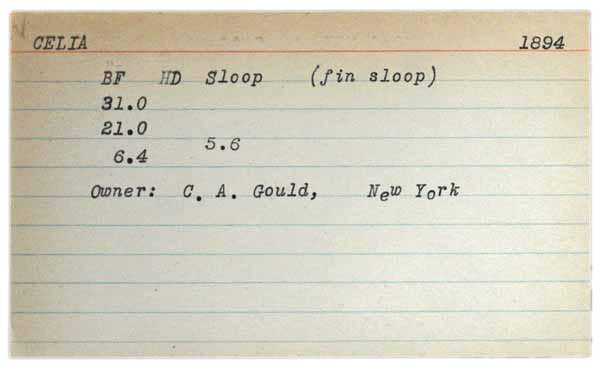 CELIA 1894
BF HD Sloop (fin sloop)
31.0
21.0
6.4 5.6
Owner: C. A. Gould, New York